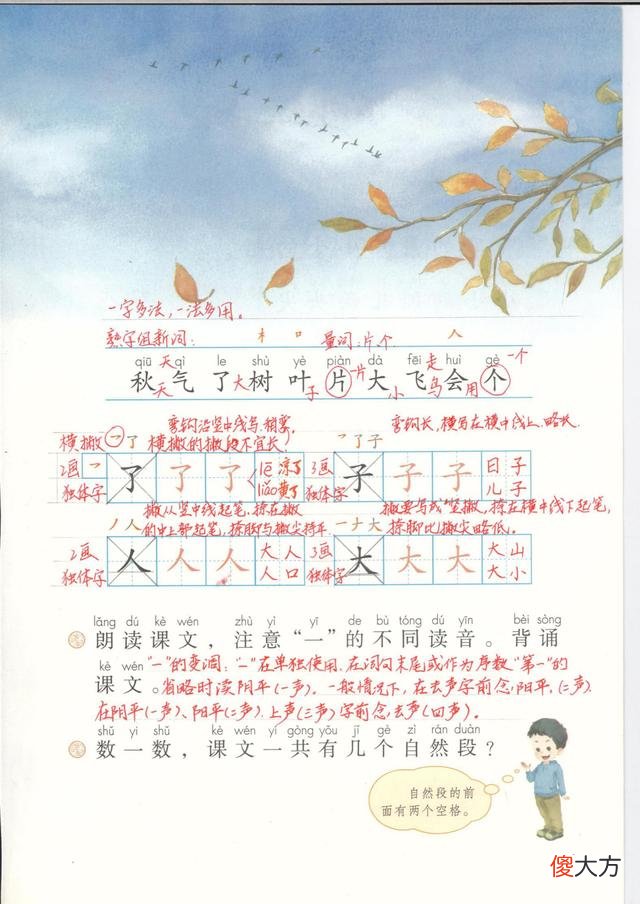 一字多法，一法多用。
熟字组新词： 礻 口 量词：片、个 人
qiū 天 qì le shù yè piàn dà fēi 走 huì gè 一个
秋 天 气 了 大 树 叶 子 片 一片 大 小 飞 鸟 会 用 个
弯钩沿竖中线写，稍弯， 弯钩长，横写在横中线上，略长。
横撇 乛了 横撇的撇段不宜长。 乛了子
2画 乛 了 了 了 le 凉了 3画 子 子 子 日子
独体字 liǎo 黄了 独体字 儿子
撇从竖中线起笔，捺在撇 撇要写成竖撇，捺在横中线下起笔，
丿人 的中上部起笔，捺脚与撇尖持平 一ナ大 捺脚比撇尖略低。
2画 人 人 人 大人 3画 大 大 大 大山
独体字 人口 独体字 大小
lǎng dú kè wén zhù yì yī de bù tóng dú yīn bèi sòng
朗读课文，注意“一”的不同读音。背诵
kè wén “一”的变调：“一”在单独使用、在词句末尾或作为序数“第一”的
课文。 省略时读阴平(一声)。一般情况下，在去声字前念阳平，(二声)
在阴平(一声)、阳平(二声)、上声(三声)字前念去声(四声)。
shǔ yī shǔ kè wén yí gòng yǒu jǐ gè zì rán duàn
数一数，课文一共有几个自然段？
自然段的前
面有两个空格。
傻大方